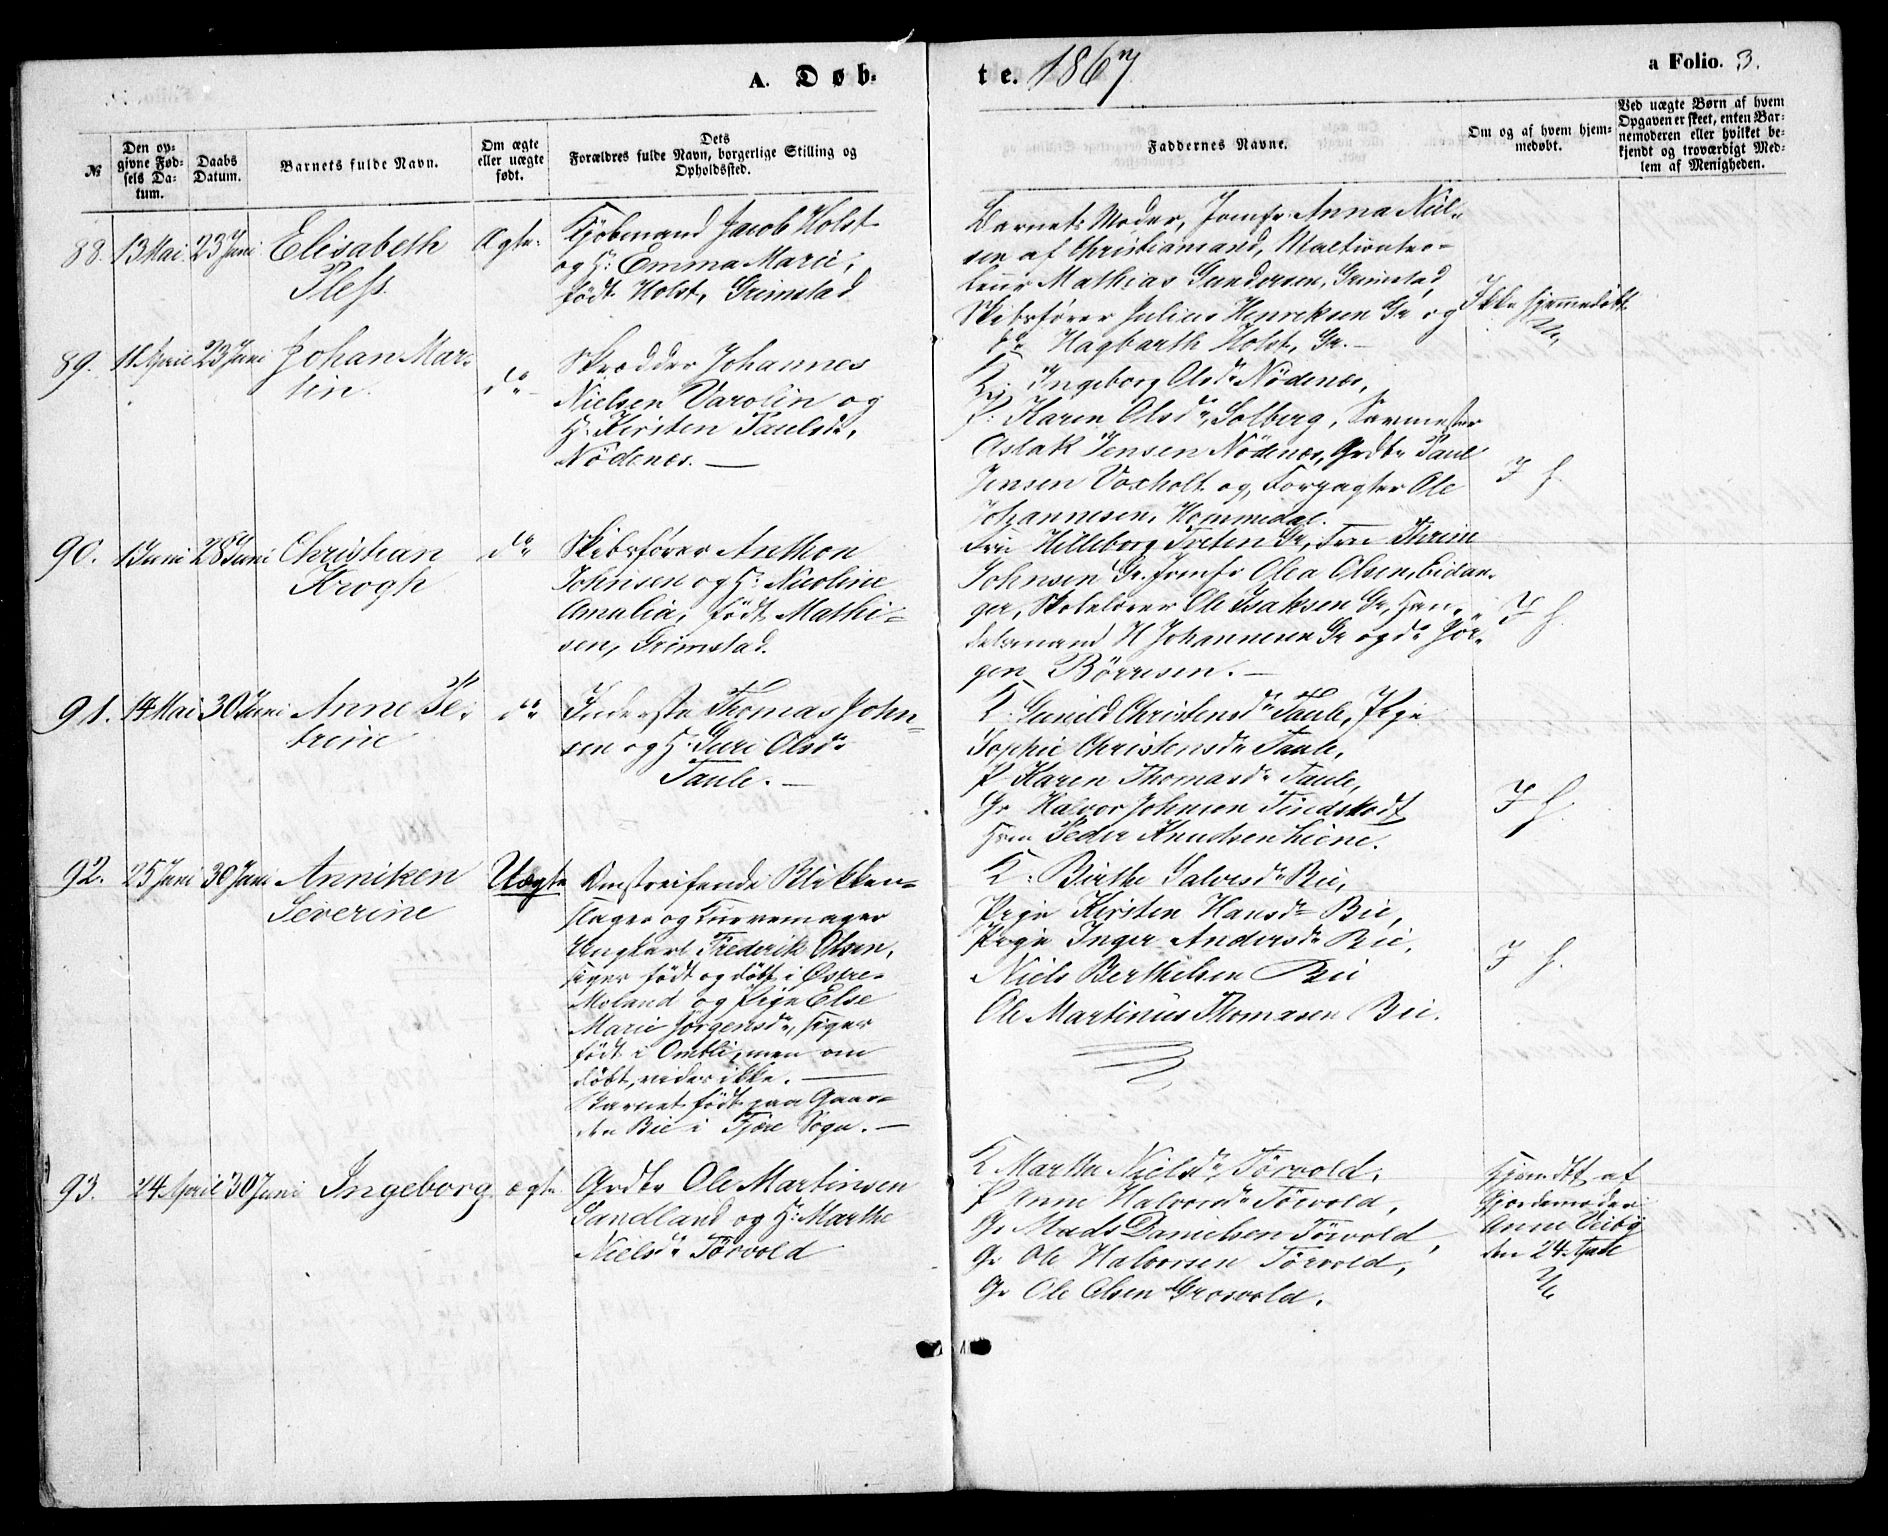 A. Døb-
te. 1867.
a Folio. 3.
№
Den op-
givne Fød-
sels Da-
tum.
Daabs
Datum.
Barnets fulde Navn.
Om ægte
eller uægte
født.
Dets
Forældres fulde Navn, borgerlige Stilling og
Opholdssted.
Faddernes Navne.
Om og af hvem hjem-
medøbt.
Ved uægte Børn af hvem
Opgaven er skeet, enten Bar-
nemoderen eller hvilket be-
kjendt og troværdigt Med-
lem af Menigheden.
88. 13 Mai 23 Juni Elisabeth
Pless.
Ægte.
Kjøbmand Jacob Holst
og H: Emma Marie,
født Holst, Grimstad
Barnets Moder, Jomfr. Anna Niel-
sen af Christiansand,
Mathias Gundersen, Grimstad,
Skibsfører Julius Henriksen Gr og
do Hagbarth Holst, Gr. -
Ikke hjemmedøbt
89. 11 April 23 Juni Johan Mar-
tin.
do
Skrædder Johannes
Nielsen Varolin og
H: Kirsten Paulsdr,
Nödenes. -
K: Ingeborg Olsdr Nödenes,
P: Karen Olsdr, Solberg,
Aslak Jensen Nödenes, Grdbr Paul
Jensen Voxholt og Forpagter Ole
Johannesen, Hommedal.
I h.
90. 1 Juni 28 Juni Christian
Krogh
do
Skibsfører Anthon
Johnsen og H: Nicoline
Amalia, født Mathi-
sen, Grimstad.
Fru Hilleborg Treten Gr, Fru Thrine
Johnsen Gr. Jomfr Olea Olsen, Eidan-
ger, Skolelærer Ole Isaksen Gr, Han-
delsmand H Johannesen Gr og do Jör-
gen Börresen. -
I h.
91. 14 Mai 30 Juni Anne Pe-
trine
do
Inderste Thomas John-
sen og H. Guri Olsdr
Taule. -
K: Gunild Christensdr Taule, Pige
Sophie Christensdr Taule,
P Karen Thomasdr Taule,
Gr Halvor Johnsen
Peder Knudsen Liene.
I h.
92. 25 Juni 30 Juni Anniken
Severine
Uægte
Omstreifende Blikken-
slager og Kurvemager
Ungkarl Frederik Olsen,
siger født og døbt i Østre-
Moland og Pige Else
Marie Jörgensdr, siger
født i Omlli, men om
døbt, vides ikke. -
Barnet født paa Gaar-
den Bie i Fjære Sogn. -
K: Birthe Salvesdr Bie,
Pige Kirsten Hansdr Bie,
Pige Inger Andersdr Bie,
Niels Berthelsen Bie
Ole Martinius Thomasen Bie.
I h.
93. 24 April 30 Juni Ingeborg
ægte
Grdbr Ole Martinsen
Sandland og H: Marthe
Nielsdr Törvold
K Marthe Nielsdr, Törvold,
P Anne Halvorsdr Törvold,
Gr Mads Danielsen Törvold,
Gr Ole Halvorsen Törvold,
Gr Ole Olsen Groswold.
Hjemdbt af
Gjordemoder
Anne Vieby
den 24 Apil